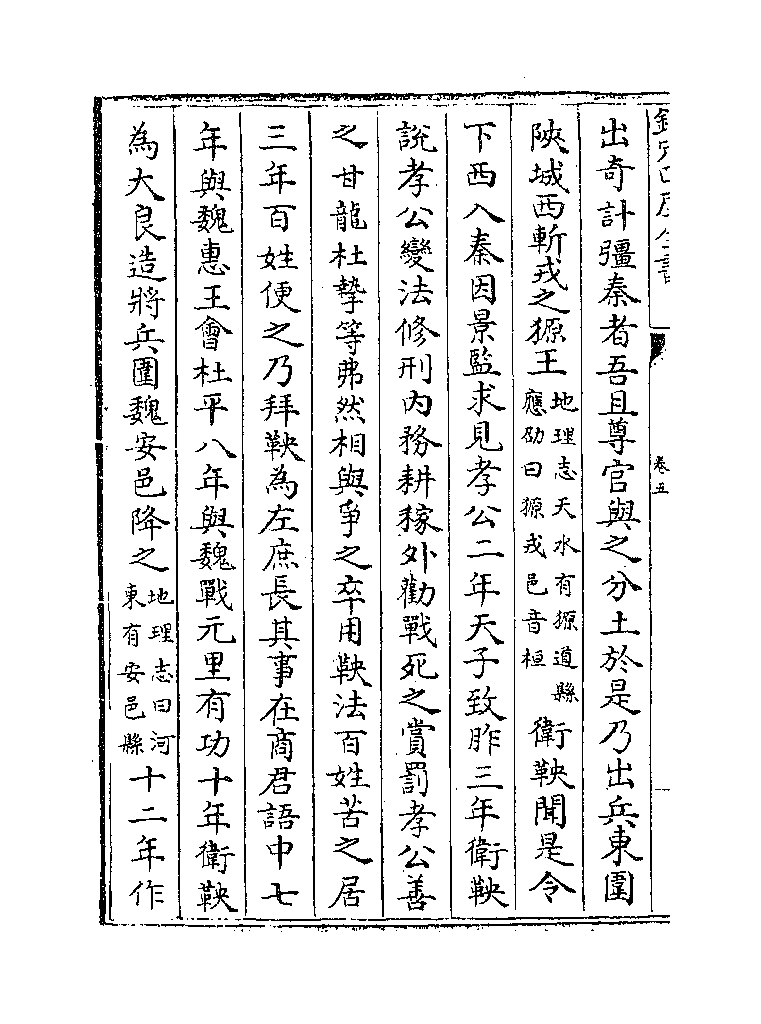 欽定四庫全書
卷五
出奇計彊秦者吾且尊官與之分土於是乃出兵東圍
陜城西斬戎之獂王地理志天水有獂道縣應劭曰獂戎邑音桓衛鞅聞是令
下西入秦因景監求見孝公二年天子致胙三年衛鞅
說孝公變法修刑内務耕稼外勸戰死之賞罰孝公善
之甘龍杜摯等弗然相與爭之卒用鞅法百姓苦之居
三年百姓便之乃拜鞅為左庶長其事在商君語中七
年與魏惠王會杜平八年與魏戰元里有功十年衛鞅
為大良造將兵圍魏安邑降之地理志曰河東有安邑縣十二年作